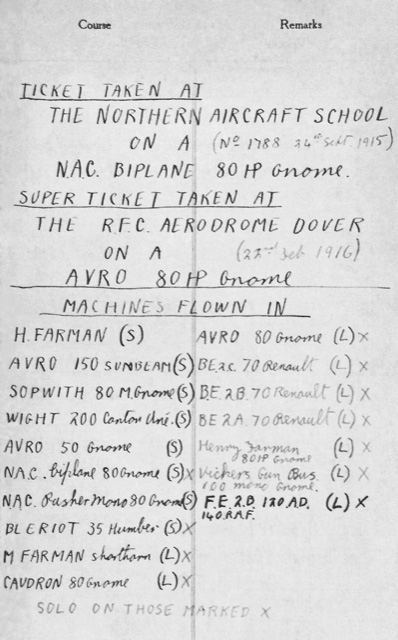 Course Remarks
TICKET TAKEN AT
THE NORTHERN AIRCRAFT SCHOOL
ON A (No 1788 24th Sept. 1915)
N.A.C. BIPLANE 80 HP Gnome.
SUPER TICKET TAKEN AT
THE R.F.C. AERODROME DOVER
ON A (22nd Feb 1916)
AVRO 80 HP Gnome
MACHINES FLOWN IN
H. FARMAN (S)
AVRO 150 SUNBEAM (S)
SOPWITH 80 M.Gnome (S)
WIGHT 200 Canton Uné. (S)
AVRO 50 Gnome (S)
N.A.C. Biplane 80 Gnome (S) X
N.A.C. Pusher Mono 80 Gnome (S)
BLERIOT 35 Humber (S) X
M FARMAN shorthorn (L) X
CAUDRON 80 Gnome (L) X
AVRO 80 Gnome (L) X
BE2c. 70 Renault (L) X
B.E. 2B. 70 Renault (L) X
BE 2A. 70 Renault (L) X
Henry Farman (L) X
80 HP Gnome
Vickers Gun Bus (L) X
100 mono Gnome.
F.E. 2.B 120 A.D. (L) X
140 R.A.F.
SOLO ON THOSE MARKED X